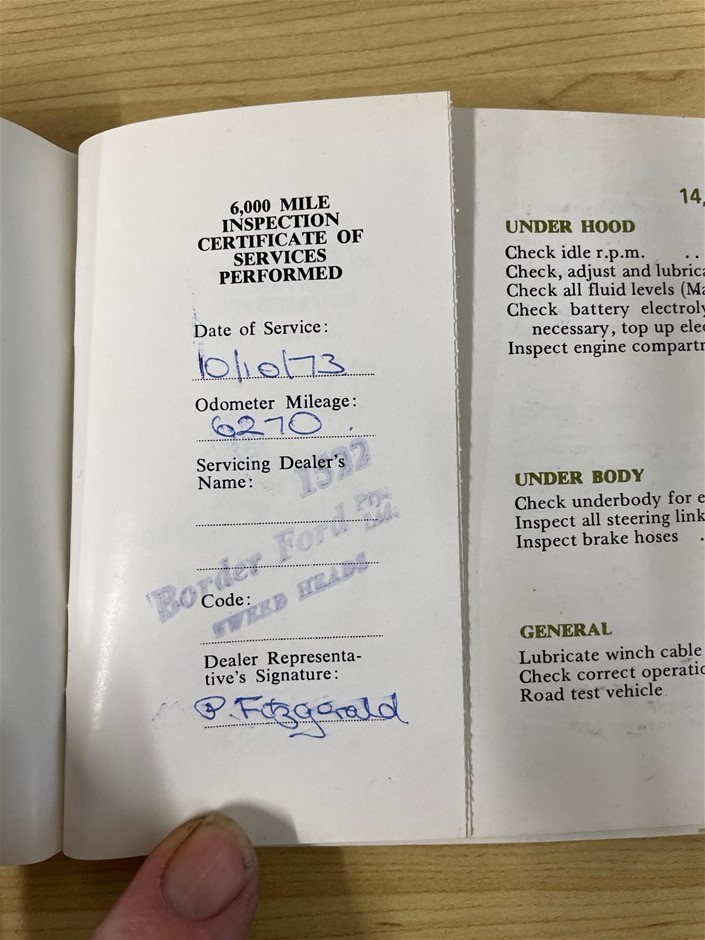 6,000 MILE
INSPECTION
CERTIFICATE OF
SERVICES
PERFORMED
Date of Service:
10/10/73
Odometer Mileage:
6270
Servicing Dealer's
Name:
1322
Border Ford Pty. Ltd.
TWEED HEADS
Code:
Dealer Representa-
tive's Signature:
P. Fitzgerald
14,
UNDER HOOD
Check idle r.p.m. . .
Check, adjust and lubrica
Check all fluid levels (Ma
Check battery electroly
necessary, top up elec
Inspect engine compartm
UNDER BODY
Check underbody for e
Inspect all steering link
Inspect brake hoses .
GENERAL
Lubricate winch cable
Check correct operatio
Road test vehicle